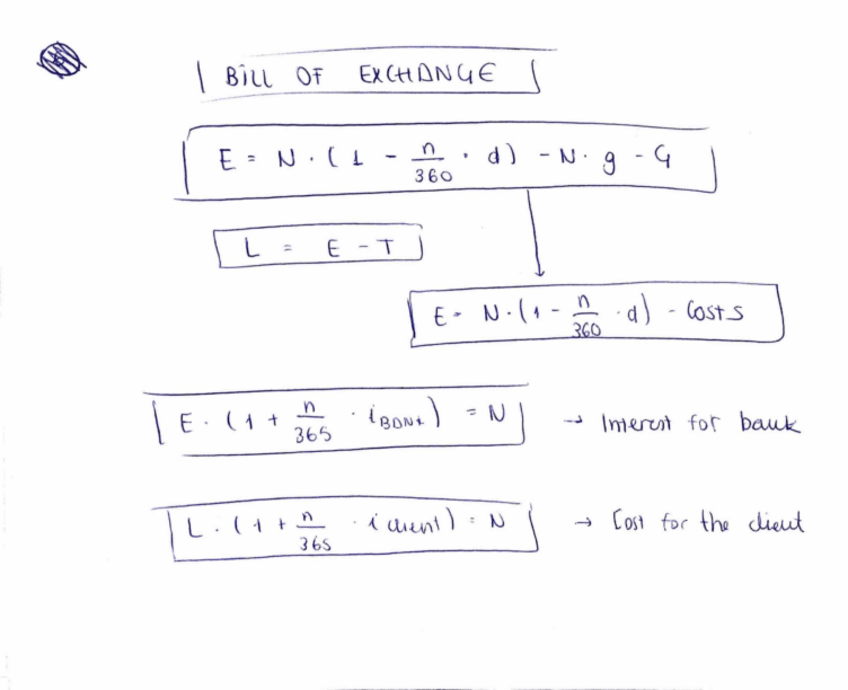 BILL OF EXCHANGE
E = N · (1 - n/360 · d) - N · g - G
L = E - T
E = N · (1 - n/360 · d) - Costs
E · (1 + n/365 · i BANK) = N → Interest for bank
L · (1 + n/365 · i client) = N → Cost for the client